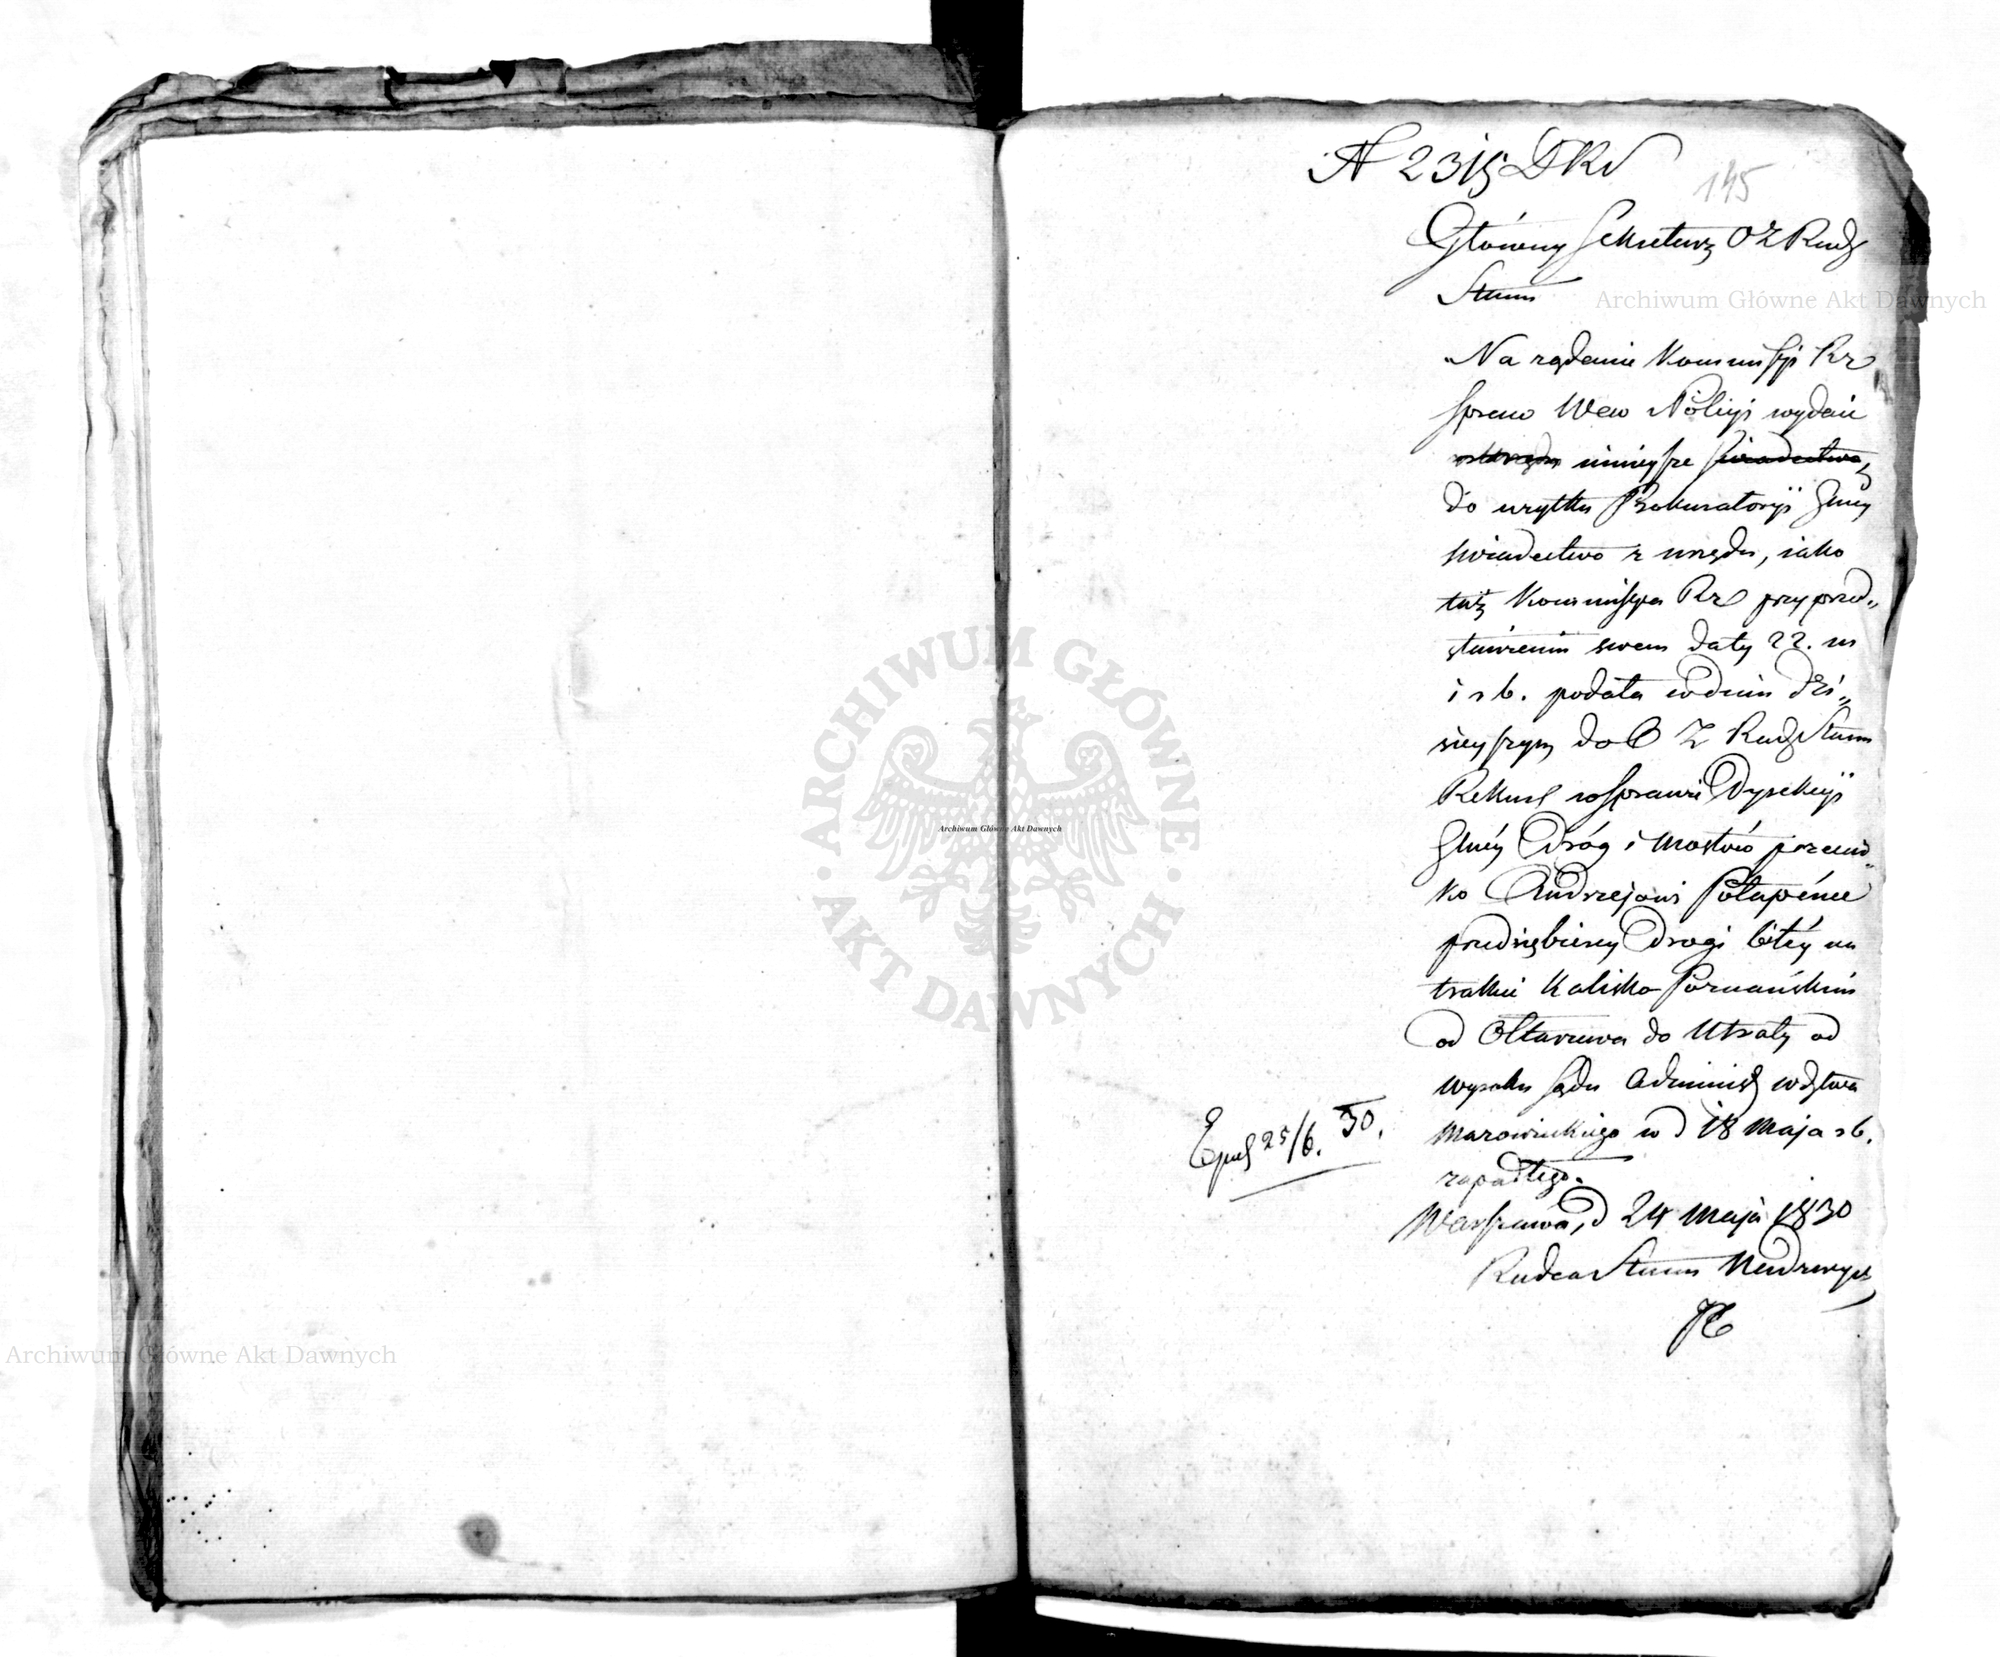 N 2315 D K N
145
Główny Sekretarz O Z Rady
Stanu
Na żądanie Kommissyi Rz
Spraw Wew i Policyi wydaie
ninieysze swiadectwo
do użytku Prokuratoryi Glney
swiadectwo z urzędu, iako
taż Kommissya Rz przy przed„
stawieniu swem daty 22. m
i r b. podała w dniu dzi„
sieyszym do O Z Rady Stanu
Rekurs w sprawie Dyrekcyi
Glnéy Dróg i Mostów przeciw„
ko Andrzejowi Potupénce
przedsiębiercy Drogi bitéy na
trakcie Kalisko Poznańskim
od Ołtarzewa do Utraty od
wyroku Sądu Administ wdztwa
Mazowieckiego w d 18 Maja r b.
zapadłego.
Warszawa, d 24 Maja 1830
Radca Stanu Nadzwycz
Exped 25/6. 30.
Archiwum Główne Akt Dawnych
Archiwum Główne Akt Dawnych
Archiwum Główne Akt Dawnych
ARCHIWUM GŁÓWNE
AKT DAWNYCH